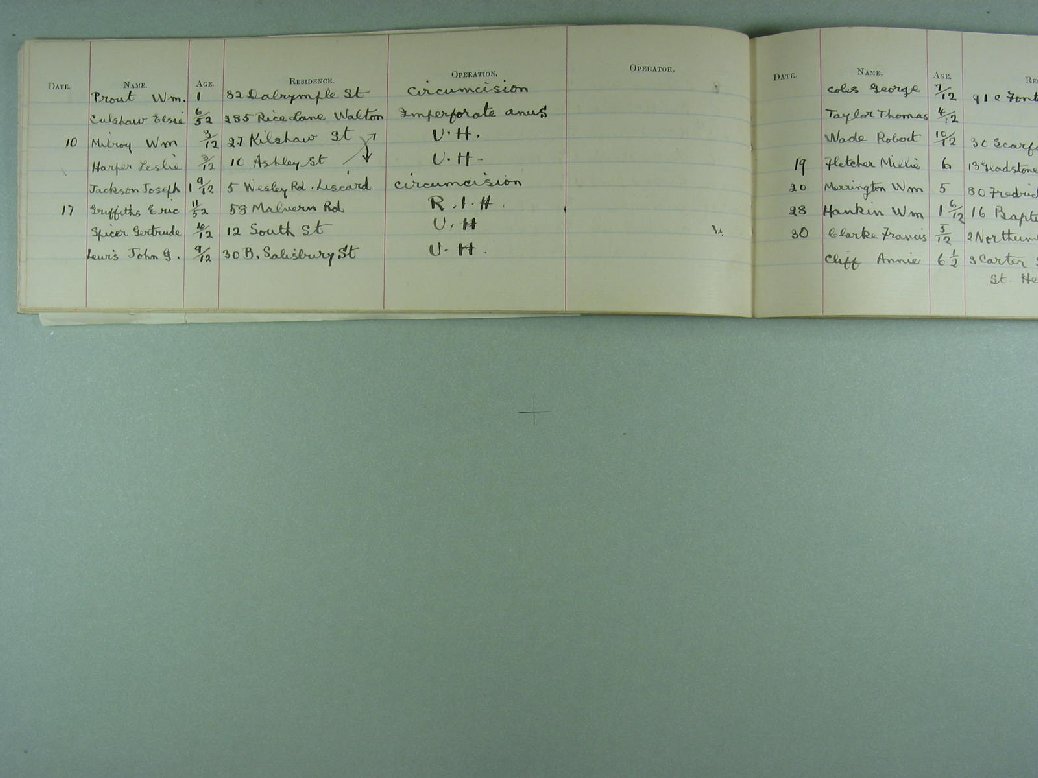 DATE. NAME. AGE. RESIDENCE. OPERATION. OPERATOR.
Prout Wm. 1 32 Dalrymple St circumcision
Culshaw Elsie 6/52 285 Rice Lane Walton Imperforate anus
10 Milroy Wm 3/12 27 Kilshaw St U.H.
Harper Leslie 3/12 10 Ashley St U.H.
Jackson Joseph 1 9/12 5 Wesley Rd. Liscard circumcision
17 Griffiths Eric 11/52 59 Malvern Rd R.I.H.
Spicer Gertrude 12 South St U.H
Lewis John G. 9/12 30 B. Salisbury St U.H.
DATE. NAME. AGE. RE
Coles George 7/12 91 c Font
Taylor Thomas 4/12
Wade Robert 10/12 30 Scarf
19 Fletcher Millie 6 Gladstone
20 Marrington Wm 5 80 Fredric
28 Hankin Wm 1 6/12 16 Bapt
30 Clarke Francis 5/12 2 Northum
Cliff Annie 6 1/2 3 Carter S
St. He